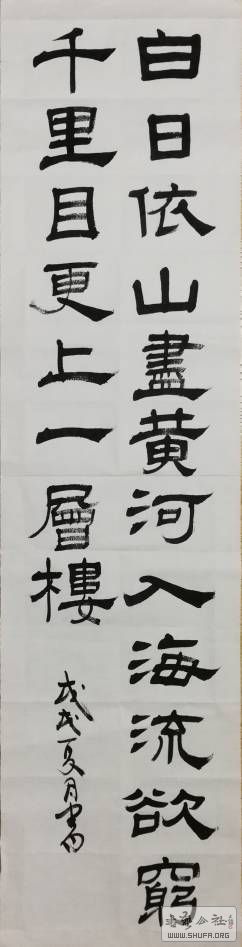 白日依山盡黄河入海流欲窮
千里目更上一層樓
戊戌夏月
WWW.SHUFA.ORG